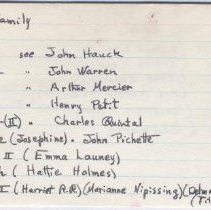 Family
see John Hauck
" John Warren
" Arthur Mercier
" Henry Petit
(II) " Charles Quintal
(Josephine). John Pichette
II (Emma Launey)
(Hattie Holmes)
I (Harriet R.R) (Marianne Nipissing)